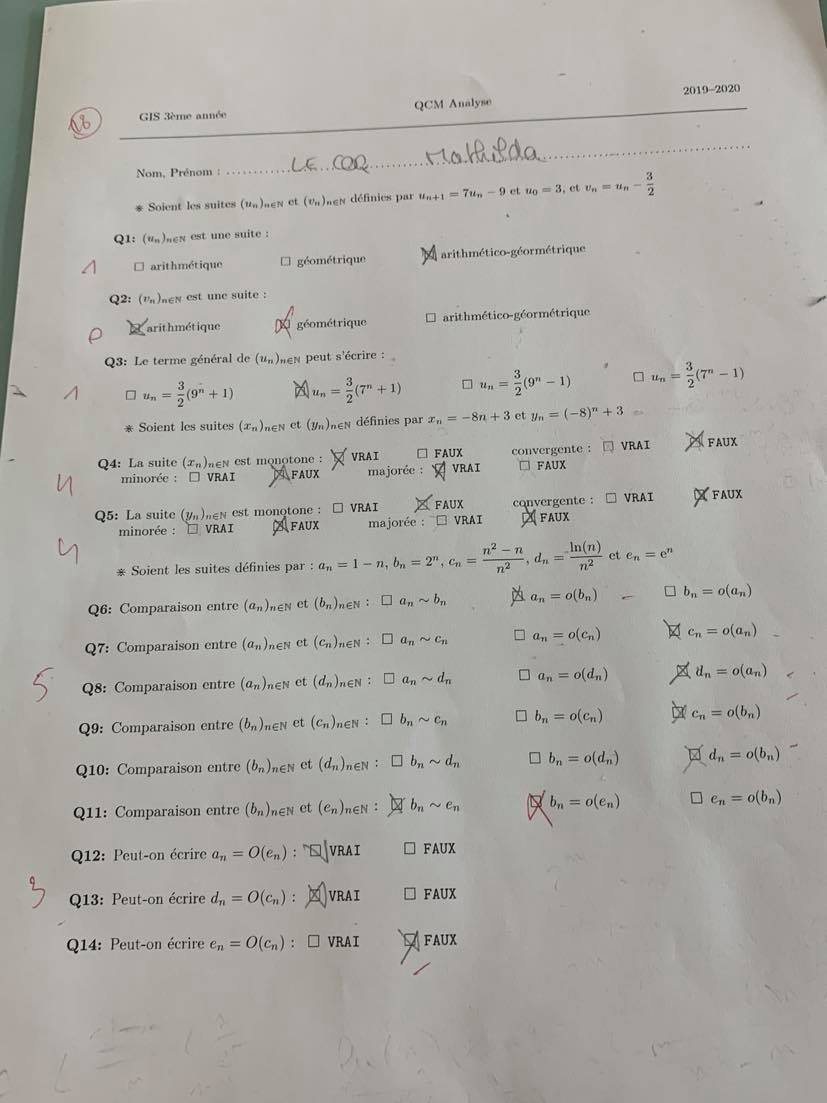 2019–2020
GIS 3ème année QCM Analyse
18
Nom, Prénom : LE COQ Mathilda
* Soient les suites (uₙ)ₙ∈ℕ et (vₙ)ₙ∈ℕ définies par uₙ₊₁ = 7uₙ − 9 et u₀ = 3, et vₙ = uₙ − 3/2
Q1: (uₙ)ₙ∈ℕ est une suite :
1 ☐ arithmétique ☐ géométrique ☒ arithmético-géormétrique
Q2: (vₙ)ₙ∈ℕ est une suite :
0 ☒ arithmétique ☒ géométrique ☐ arithmético-géormétrique
Q3: Le terme général de (uₙ)ₙ∈ℕ peut s'écrire :
1 ☐ uₙ = 3/2(9ⁿ + 1) ☒ uₙ = 3/2(7ⁿ + 1) ☐ uₙ = 3/2(9ⁿ − 1) ☐ uₙ = 3/2(7ⁿ − 1)
* Soient les suites (xₙ)ₙ∈ℕ et (yₙ)ₙ∈ℕ définies par xₙ = −8n + 3 et yₙ = (−8)ⁿ + 3
Q4: La suite (xₙ)ₙ∈ℕ est monotone : ☒ VRAI ☐ FAUX convergente : ☐ VRAI ☒ FAUX
4 minorée : ☐ VRAI ☒ FAUX majorée : ☒ VRAI ☐ FAUX
Q5: La suite (yₙ)ₙ∈ℕ est monotone : ☐ VRAI ☒ FAUX convergente : ☐ VRAI ☒ FAUX
4 minorée : ☐ VRAI ☒ FAUX majorée : ☐ VRAI ☒ FAUX
* Soient les suites définies par : aₙ = 1 − n, bₙ = 2ⁿ, cₙ = (n² − n)/n², dₙ = ln(n)/n² et eₙ = eⁿ
Q6: Comparaison entre (aₙ)ₙ∈ℕ et (bₙ)ₙ∈ℕ : ☐ aₙ ∼ bₙ ☒ aₙ = o(bₙ) ☐ bₙ = o(aₙ)
Q7: Comparaison entre (aₙ)ₙ∈ℕ et (cₙ)ₙ∈ℕ : ☐ aₙ ∼ cₙ ☐ aₙ = o(cₙ) ☒ cₙ = o(aₙ)
5 Q8: Comparaison entre (aₙ)ₙ∈ℕ et (dₙ)ₙ∈ℕ : ☐ aₙ ∼ dₙ ☐ aₙ = o(dₙ) ☒ dₙ = o(aₙ)
Q9: Comparaison entre (bₙ)ₙ∈ℕ et (cₙ)ₙ∈ℕ : ☐ bₙ ∼ cₙ ☐ bₙ = o(cₙ) ☒ cₙ = o(bₙ)
Q10: Comparaison entre (bₙ)ₙ∈ℕ et (dₙ)ₙ∈ℕ : ☐ bₙ ∼ dₙ ☐ bₙ = o(dₙ) ☒ dₙ = o(bₙ)
Q11: Comparaison entre (bₙ)ₙ∈ℕ et (eₙ)ₙ∈ℕ : ☒ bₙ ∼ eₙ ☒ bₙ = o(eₙ) ☐ eₙ = o(bₙ)
Q12: Peut-on écrire aₙ = O(eₙ) : ☒ VRAI ☐ FAUX
3 Q13: Peut-on écrire dₙ = O(cₙ) : ☒ VRAI ☐ FAUX
Q14: Peut-on écrire eₙ = O(cₙ) : ☐ VRAI ☒ FAUX